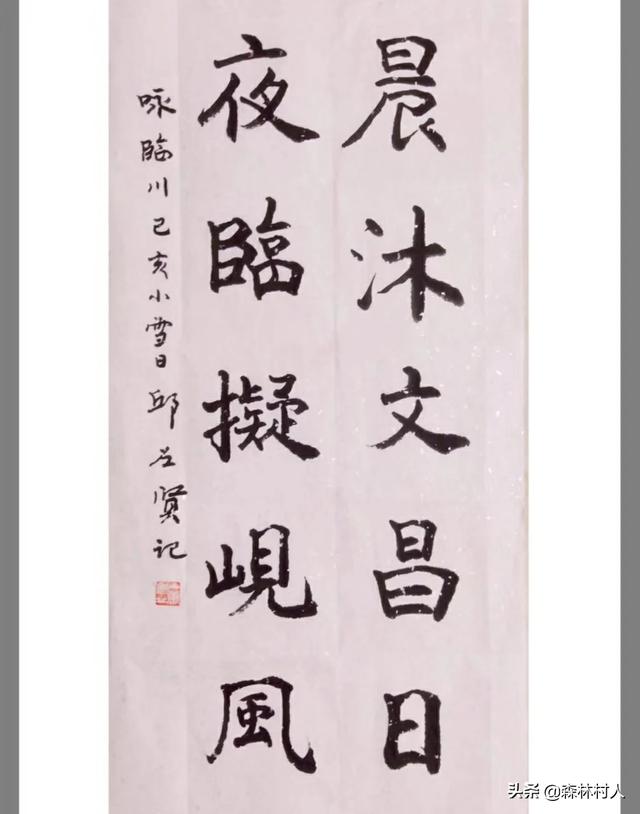 晨沐文昌日
夜臨擬峴風
咏臨川己亥小雪日邱
贤记
头条 @森林村人